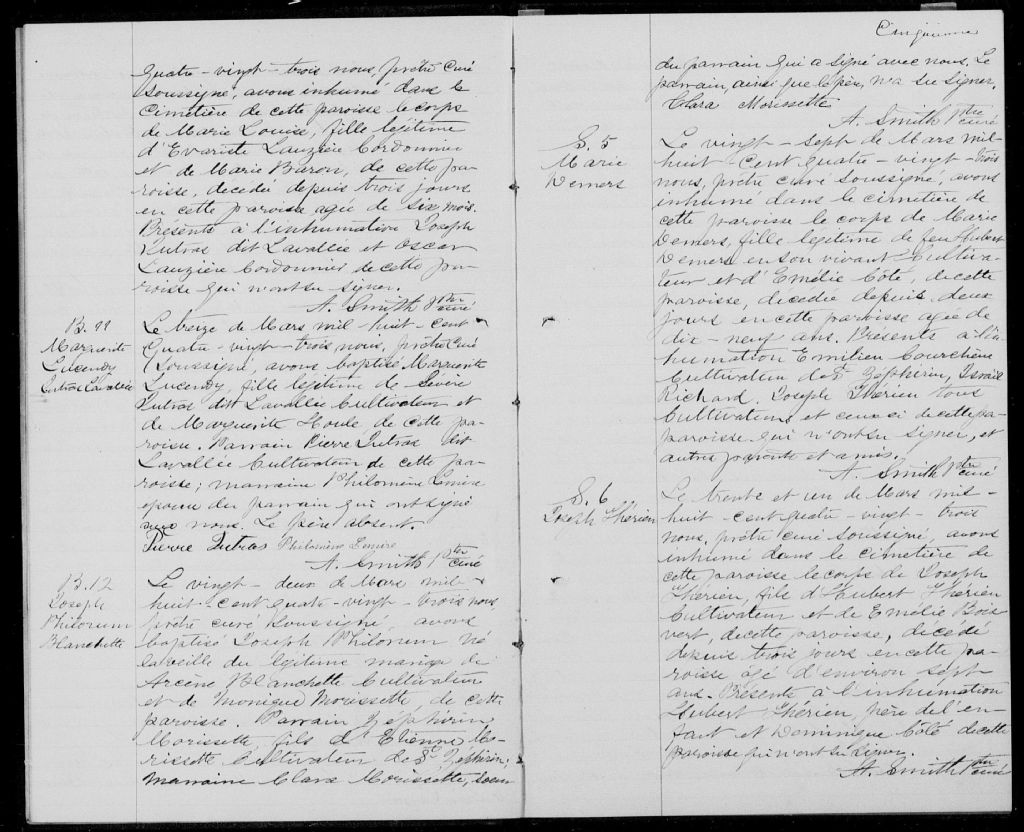 quatre-vingt-trois nous, prêtre curé
soussigné, avons inhumé dans le
cimetière de cette paroisse le corps
de Marie Louise, fille légitime
d'Evariste Lauzière Cordonnier
et de Marie Baron, de cette pa-
roisse, décédée depuis trois jours
en cette paroisse agée de six mois.
Présents à l'inhumation Joseph
Jutras dit Lavallée et Oscar
Lauzière Cordonnier de cette pa-
roisse qui n'ont su signer.
A. Smith Ptre curé
B. 11
Marguerite
Lucendy
Jutras Lavallée
Le treize de Mars mil-huit-cent
quatre-vingt-trois nous, prêtre curé
soussigné, avons baptisé Marguerite
Lucendy, fille légitime de Sévère
Jutras dit Lavallée Cultivateur et
de Marguerite Houle de cette pa-
roisse. Parrain Pierre Jutras dit
Lavallée Cultivateur de cette pa-
roisse; marraine Philomène Lemire
épouse du parrain qui ont signé
avec nous. Le père absent.
Pierre Jutras Philomène Lemire
A. Smith Ptre curé
B. 12
Joseph
Philorum
Blanchette
Le vingt-deux de Mars mil-
huit-cent quatre-vingt-trois nous
prêtre curé soussigné, avons
baptisé Joseph Philorum né
la veille du légitime mariage de
Arcène Blanchette Cultivateur
et de Monique Morissette, de cette
paroisse. Parrain Zéphirin
Morissette fils d'Etienne Mo-
rissette Cultivateur de St Zéphirin;
marraine Clara Morissette, soeur
Cinquième
du parrain qui a signé avec nous. Le
parrain, ainsi que le père, n'a su signer.
Clara Morissette
A. Smith Ptre curé
S. 5
Marie
Demers
Le vingt-sept de Mars mil-
huit-cent quatre-vingt-trois
nous, prêtre curé soussigné, avons
inhumé dans le cimetière de
cette paroisse le corps de Marie
Demers, fille légitime de feu Hubert
Demers en son vivant Cultiva-
teur et d'Emélie Côté, de cette
paroisse, décédée depuis deux
jours en cette paroisse agée de
dix-neuf ans. Présents à l'in
humation Emilien Courchène
Cultivateur de St Zéphirin, Israël
Richard, Joseph Thérien tous
Cultivateurs et ceux ci de cette pa
paroisse qui n'ont su signer, et
autres parents et amis.
A. Smith Ptre curé
S. 6
Joseph Thérien
Le trente et un de Mars mil-
huit-cent quatre-vingt-trois
nous, prêtre curé soussigné, avons
inhumé dans le cimetière de
cette paroisse le corps de Joseph
Thérien, fils d'Hubert Thérien
Cultivateur et de Emélie Bois
vert, de cette paroisse, décédé
depuis trois jours en cette pa-
roisse agé d'environ sept
ans. Présents à l'inhumation
Hubert Thérien, père de l'en-
fant et Dominique Côté de cette
paroisse qui n'ont su signer.
A. Smith Ptre curé